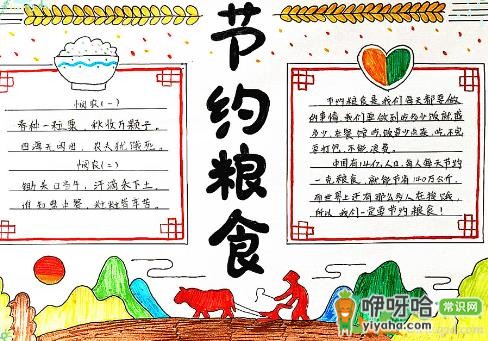 节约粮食
悯农(一)
春种一粒粟,秋收万颗子。
四海无闲田,农夫犹饿死。
悯农(二)
锄禾日当午,汗滴禾下土。
谁知盘中餐,粒粒皆辛苦。
节约粮食是我们每天都要做
的事情,我们要做到吃多少饭就盛
多少,在餐馆吃饭要少点菜,吃不完
要打包,不能浪费。
中国有14亿人口,每人每天节约
一克粮食,就能节省140万公斤,
而世界上还有那么多人在挨饿,
所以我们一定要节约粮食!
咿呀哈 常识网
yiyaha.com